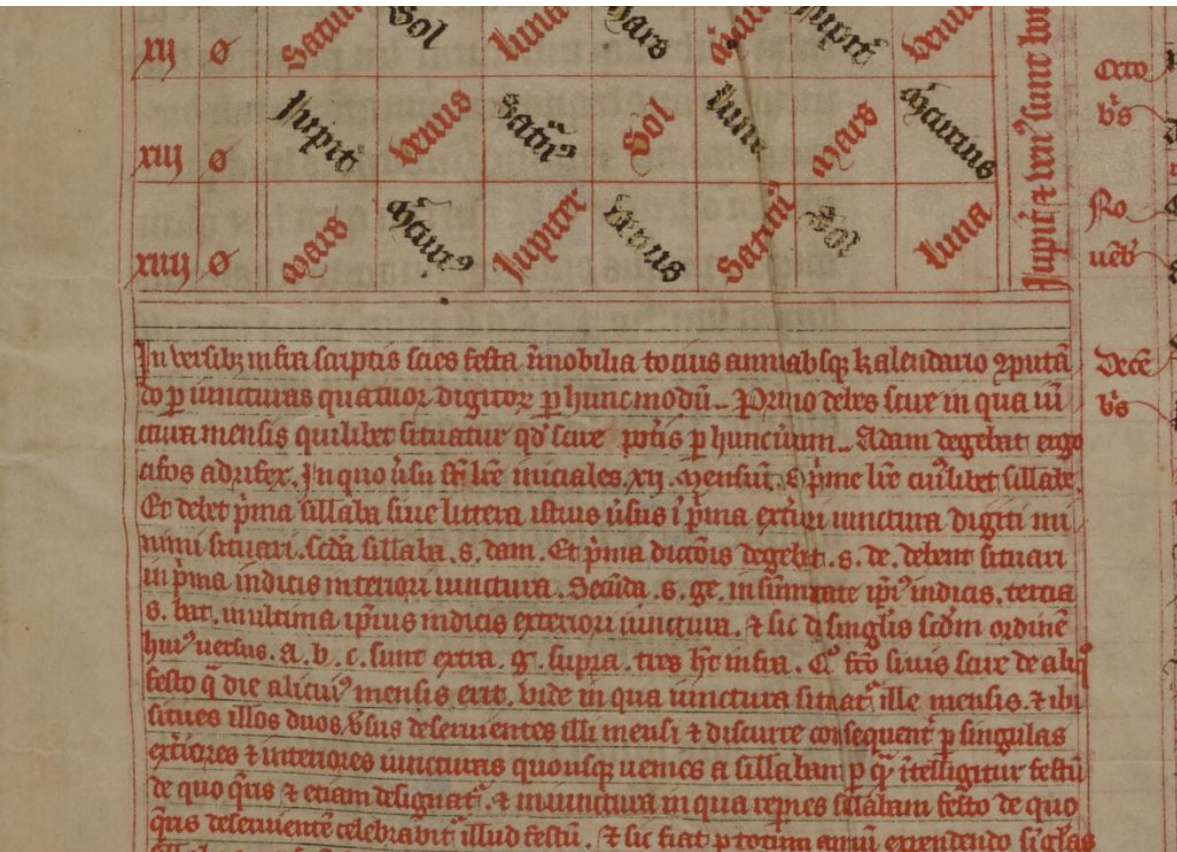 xij ø Saturnus Sol luna Mars Jupiti venus
xiij ø Jupiti venus Satñ9 Sol lune mars
xiiij ø mars Jupiter venus Satñi Sol luna
Jupiti ⁊ ven9 sunt
Octo
b's
No
ueb'
Decē
b's
In versibꝫ infra scriptis scies festa īmobilia tocius anni absqꝫ kalendario ꝯputā
do ꝑ iuncturas quatuor digitoꝝ ꝑ hunc modū Primo debes scire in qua iū
ctura mensis quilibet situatur qd' scire potis ꝑ hunc Adam degebat ergo
cifos adrifex. In quo u'su st' lr̄e iniciales. xij. mensiū. ⁊ p'me lr̄e cui'libet sillabe.
Et debet p'ma sillaba siue littera istius u'sus ī p'ma ext'iori iunctura digiti mi
nimi situari. scd'a sillaba .s. dam. Et p'ma dictōis degebat .s. de. debent situari
in p'ma indicis interiori iunctura. Secūda .s. ge. in sūmitate ip̄i9 indicis. tercia
.s. bat. in ultima ip̄ius indicis exteriori iunctura. ⁊ sic d' singl'is scd'm ordinē
hui9 uersus. a. b. c. sunt extra. g. supra. tres infra. si uis scire de aliq°
festo q̄ die alicui9 mensis erit. vide in qua iunctura situat' ille mensis. ⁊ ibi
situes illos duos v'sus deseruientes illi mensi ⁊ discurre consequent' ꝑ singulas
ext'iores ⁊ interiores iuncturas quousqꝫ uenies a sillabam ꝑ q̄ ītelligitur festū
de quo q̄ris ⁊ etiam designat'. ⁊ in iunctura in qua repies sillabam festo de quo
q̄ris deseruientē celebrabit' illud festū. ⁊ sic fiat ꝑ totum annū expendendo si'glas